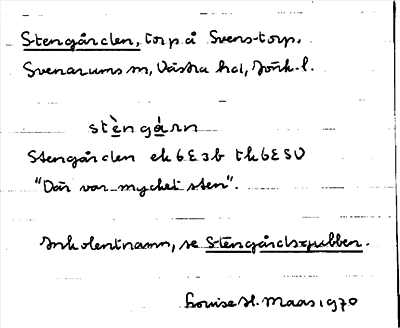 Stengården, torp å Svenstorp.
Svenarums sn, Västra hd, Jönk. l.
stèngárn
Stengården ek 6E3b tk 6ESV
"Där var mycket sten".
Ink. i lentnamn, se Stengårdsgubben.
Louise H. Maas 1970